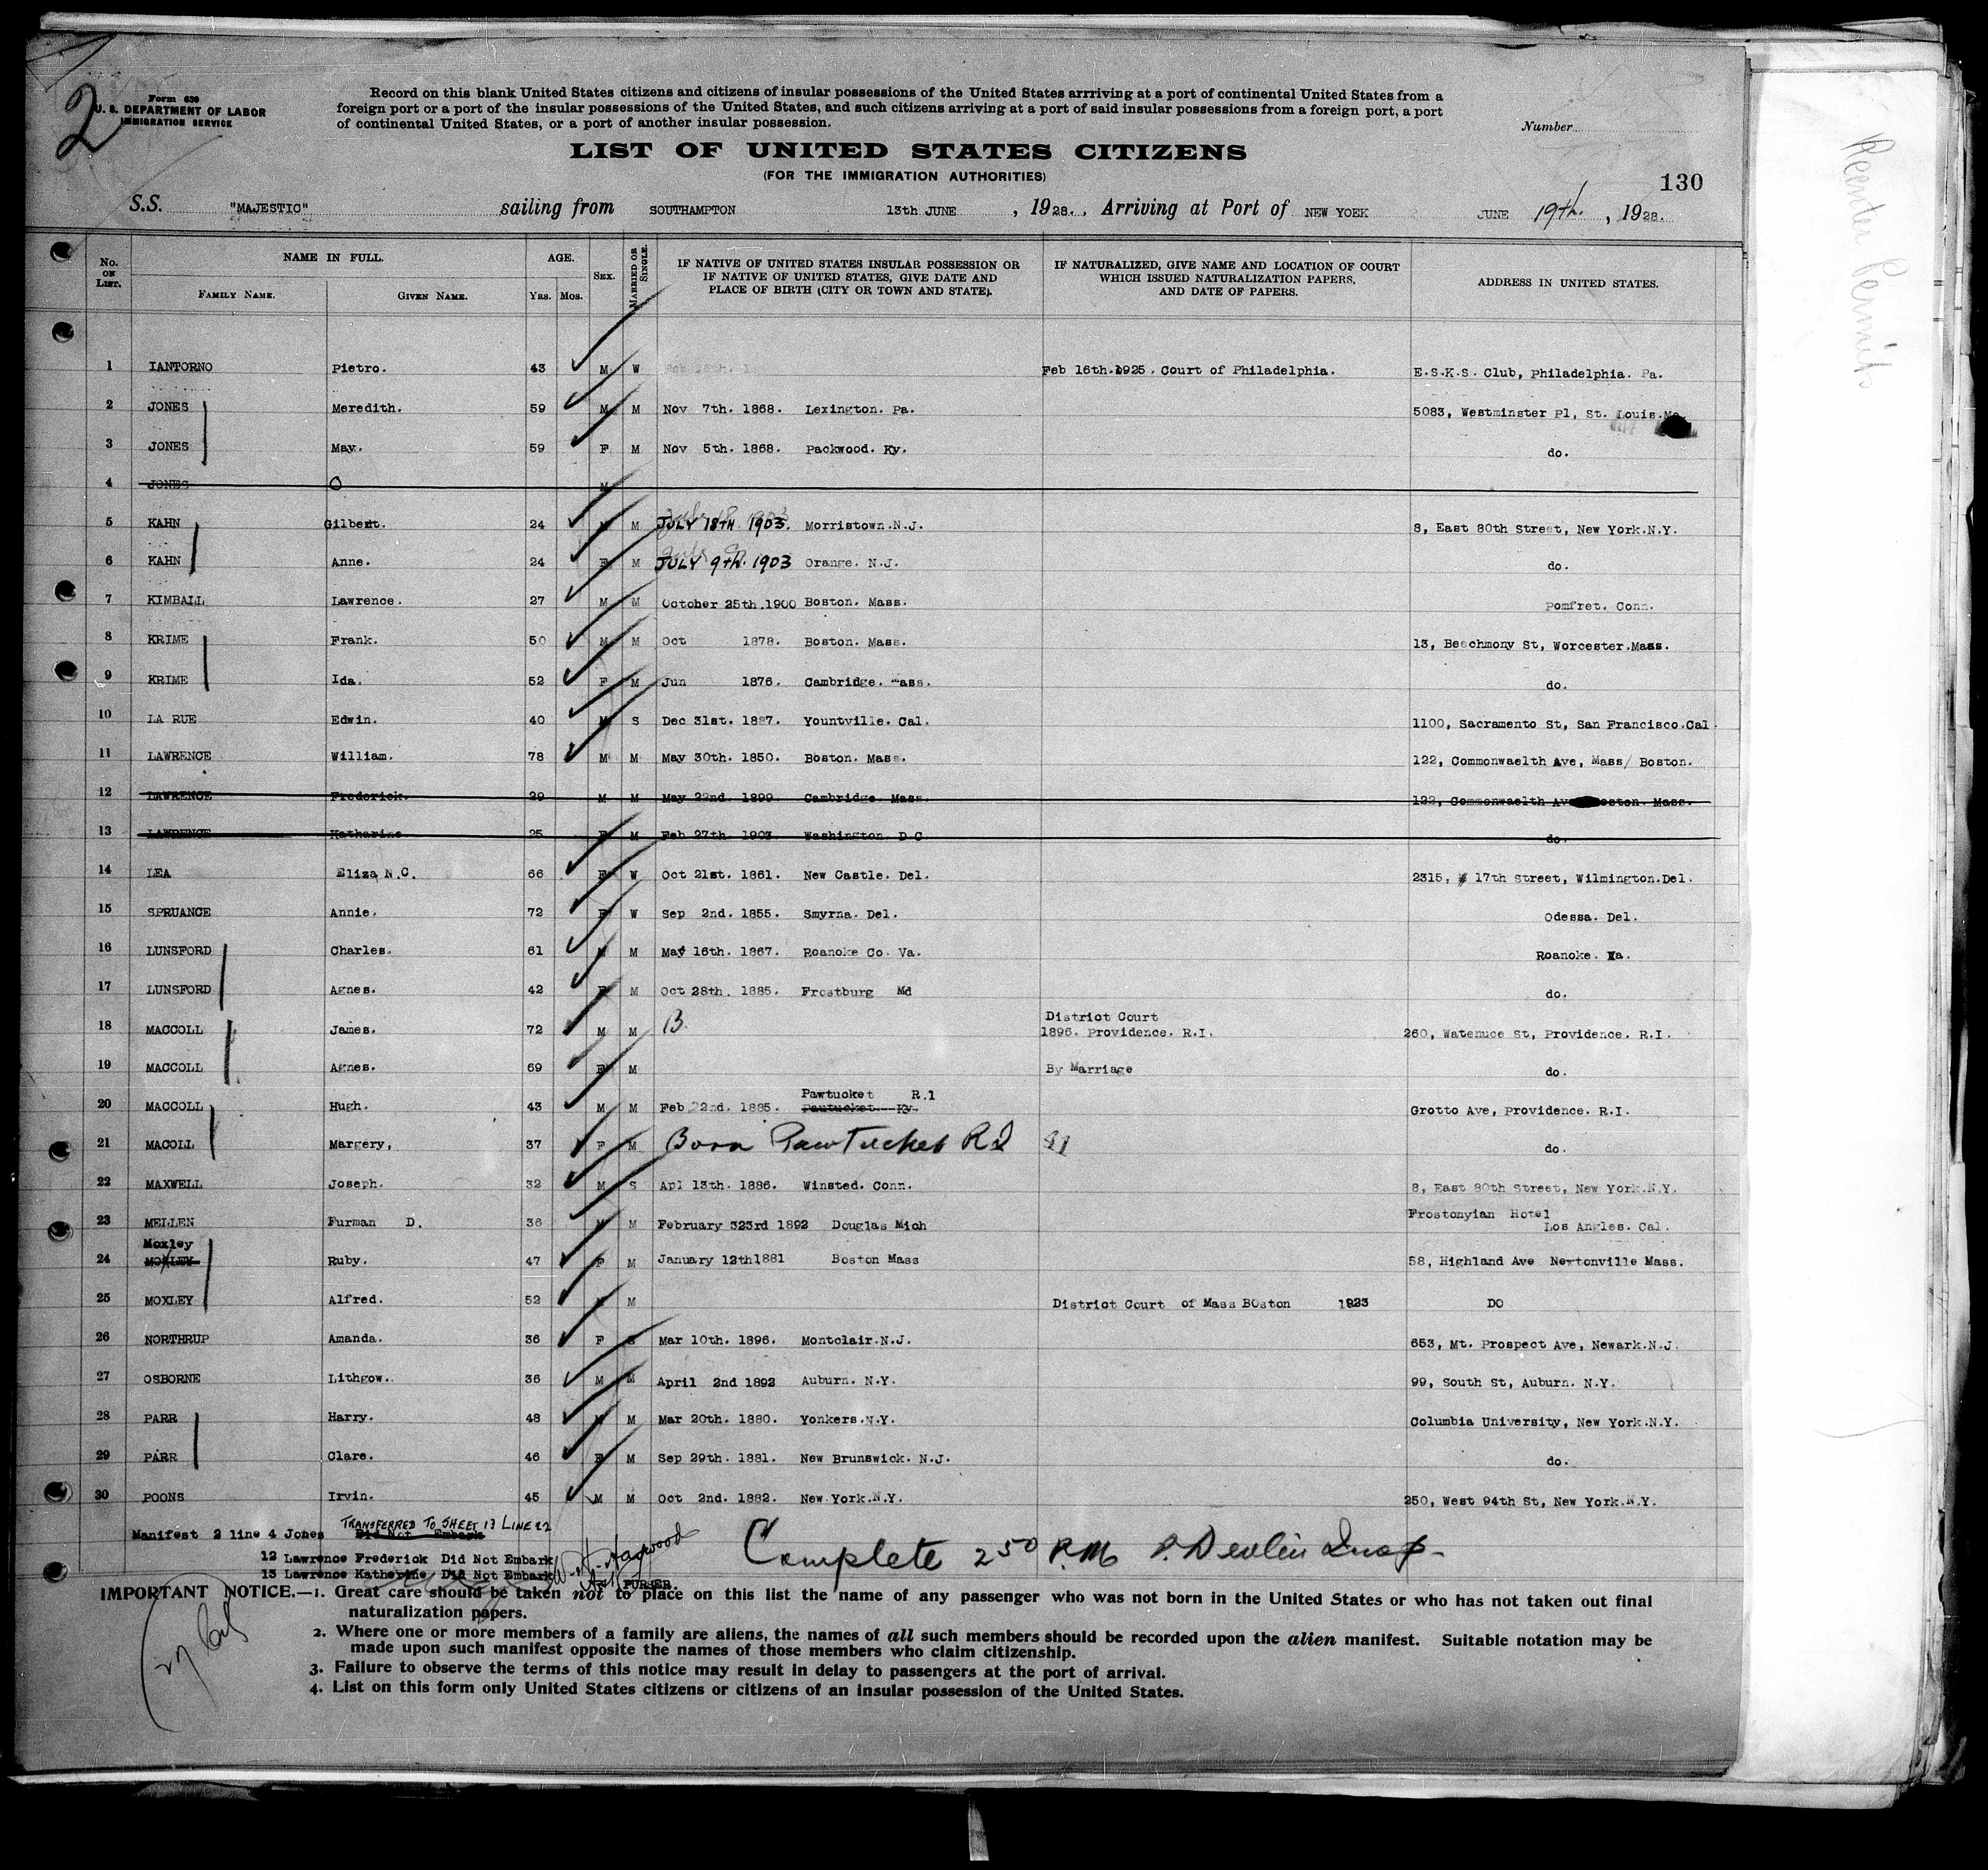 2
Form 630
U. S. DEPARTMENT OF LABOR
IMMIGRATION SERVICE
Record on this blank United States citizens and citizens of insular possessions of the United States arrriving at a port of continental United States from a
foreign port or a port of the insular possessions of the United States, and such citizens arriving at a port of said insular possessions from a foreign port, a port
of continental United States, or a port of another insular possession.
Number
LIST OF UNITED STATES CITIZENS
(FOR THE IMMIGRATION AUTHORITIES)
130
S.S. "MAJESTIC" sailing from SOUTHAMPTON 13th JUNE , 1928. , Arriving at Port of NEW YORK JUNE 19th. , 1928.
No. ON LIST. NAME IN FULL. FAMILY NAME. GIVEN NAME. AGE. Yrs. Mos. SEX. MARRIED OR SINGLE. IF NATIVE OF UNITED STATES INSULAR POSSESSION OR IF NATIVE OF UNITED STATES, GIVE DATE AND PLACE OF BIRTH (CITY OR TOWN AND STATE). IF NATURALIZED, GIVE NAME AND LOCATION OF COURT WHICH ISSUED NATURALIZATION PAPERS, AND DATE OF PAPERS. ADDRESS IN UNITED STATES.
1 IANTORNO Pietro. 43 M W Feb 16th. 1925. Court of Philadelphia. E.S.K.S. Club, Philadelphia. Pa.
2 JONES Meredith. 59 M M Nov 7th. 1868. Lexington. Pa. 5083, Westminster Pl, St. Louis.Mo.
3 JONES May. 59 F M Nov 5th. 1868. Packwood. Ky. do.
4 JONES O M
5 KAHN Gilbert. 24 M M JULY 18TH 1903. Morristown.N.J. 8, East 80th Street, New York.N.Y.
6 KAHN Anne. 24 F M JULY 9TH. 1903 Orange. N.J. do.
7 KIMBALL Lawrence. 27 M M October 25th.1900 Boston. Mass. Pomfret. Conn.
8 KRIME Frank. 50 M M Oct 1878. Boston. Mass. 13, Beechmony St, Worcester.Mass.
9 KRIME Ida. 52 F M Jun 1876. Cambridge. Mass. do.
10 LA RUE Edwin. 40 M S Dec 31st. 1887. Yountville. Cal. 1100, Sacramento St, San Francisco.Cal.
11 LAWRENCE William. 78 M M May 30th. 1850. Boston. Mass. 122, Commonwaelth Ave, Mass/ Boston.
12 LAWRENCE Frederick. 29 M M May 22nd. 1899. Cambridge. Mass. 122, Commonwaelth Av Boston. Mass.
13 LAWRENCE Katharine 25 F M Feb 27th. 1903. Washington. D.C. do.
14 LEA Eliza N.C. 66 F W Oct 21st. 1861. New Castle. Del. 2315, 17th Street, Wilmington.Del.
15 SPRUANCE Annie. 72 F W Sep 2nd. 1855. Smyrna. Del. Odessa. Del.
16 LUNSFORD Charles. 61 M M May 16th. 1867. Roanoke Co. Va. Roanoke. Va.
17 LUNSFORD Agnes. 42 F M Oct 28th. 1885. Frostburg Md do.
18 MACCOLL James. 72 M M B. District Court 1896. Providence. R.I. 260, Watenuce St, Providence. R.I.
19 MACCOLL Agnes. 69 F M By Marriage do.
20 MACCOLL Hugh. 43 M M Feb 22nd. 1885. Pawtucket R.1 Pautucket Ky. Grotto Ave, Providence. R.I.
21 MACOLL Margery, 37 F M Born Pawtucket RI 91 do.
22 MAXWELL Joseph. 32 M S Apl 13th. 1886. Winsted. Conn. 8, East 80th Street, New York.N.Y.
23 MELLEN Furman D. 36 M M February 323rd 1892 Douglas Mich Frostonyian Hotel Los Angles. Cal.
24 Moxley MOXLEY Ruby. 47 F M January 12th1881 Boston Mass 58, Highland Ave Newtonville Mass.
25 MOXLEY Alfred. 52 M M District Court of Mass BOston 1923 DO
26 NORTHRUP Amanda. 36 F S Mar 10th. 1896. Montclair.N.J. 653, Mt. Prospect Ave, Newark.N.J.
27 OSBORNE Lithgow. 36 M M April 2nd 1892 Auburn. N.Y. 99, South St, Auburn. N.Y.
28 PARR Harry. 48 M M Mar 20th. 1880. Yonkers.N.Y. Columbia University, New York.N.Y.
29 PARR Clare. 46 F M Sep 29th. 1881. New Brunswick. N.J. do.
30 POONS Irvin. 45 M M Oct 2nd. 1882. New York.N.Y. 250, West 94th St, New York.N.Y.
TRANSFERRED TO SHEET 13 LINE 22
Manifest 2 line 4 Jones Did Not Embark
12 Lawrence Frederick Did Not Embark
13 Lawrence Katherine Did Not Embark
PURSER.
Complete 2 50 P.M. P. Devlin Insp.
IMPORTANT NOTICE.—1. Great care should be taken not to place on this list the name of any passenger who was not born in the United States or who has not taken out final
naturalization papers.
2. Where one or more members of a family are aliens, the names of all such members should be recorded upon the alien manifest. Suitable notation may be
made upon such manifest opposite the names of those members who claim citizenship.
3. Failure to observe the terms of this notice may result in delay to passengers at the port of arrival.
4. List on this form only United States citizens or citizens of an insular possession of the United States.
Reenter Permits